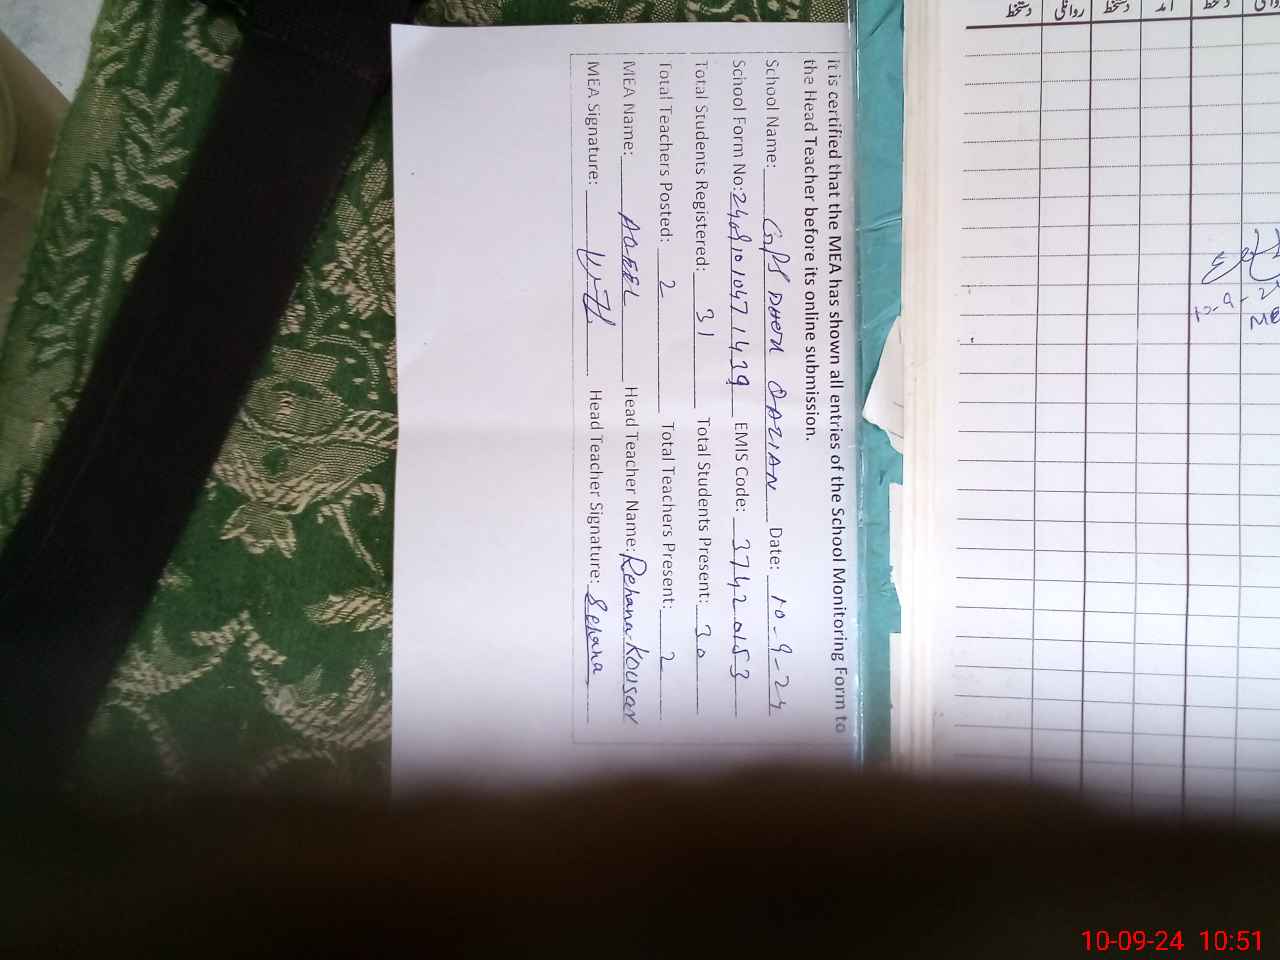 It is certified that the MEA has shown all entries of the School Monitoring Form to
the Head Teacher before its online submission.
School Name: GPS DHERI QAZIAN Date: 10-9-24
School Form No: EMIS Code: 37420153
Total Students Registered: 31 Total Students Present: 30
Total Teachers Posted: 2 Total Teachers Present: 2
MEA Name: AQEEL Head Teacher Name: Rehana Kousar
MEA Signature: Head Teacher Signature: Rehana
دستخط روانگی دستخط آمد دستخط
10-09-24 10:51